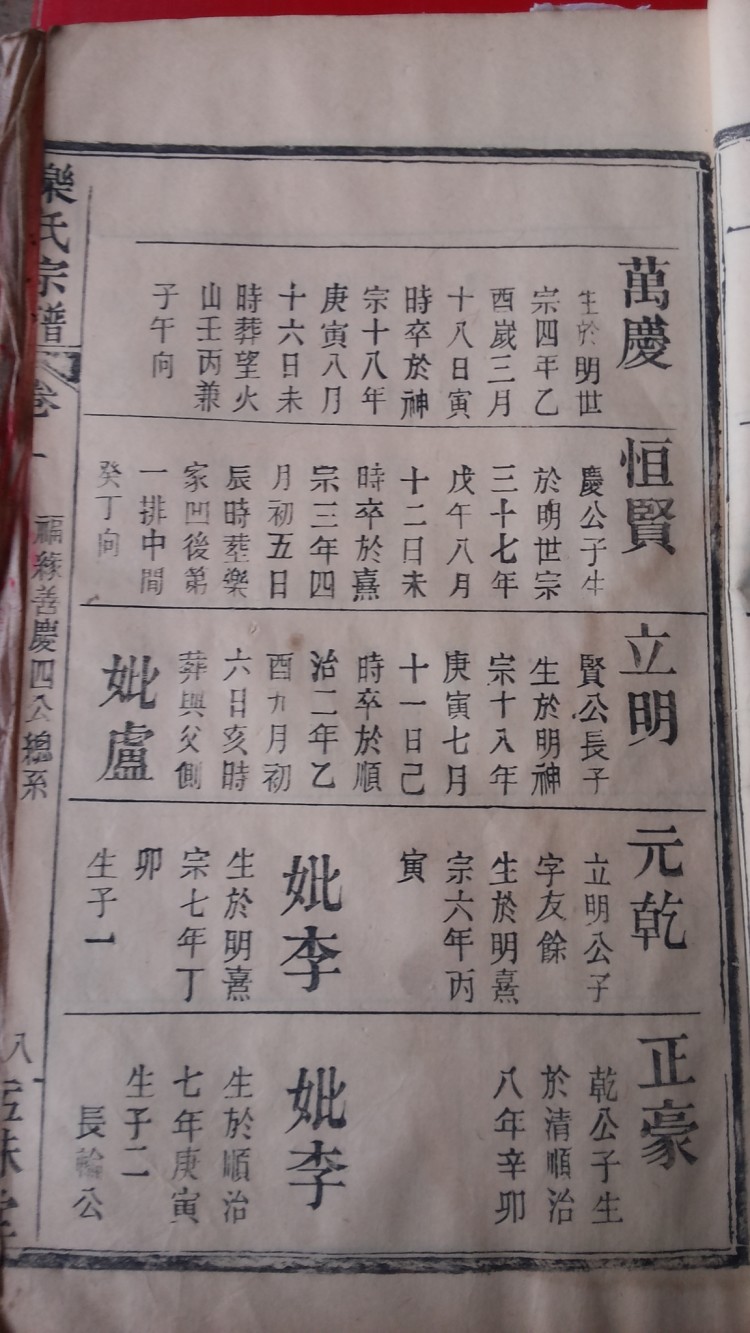 萬慶
生於明世
宗四年乙
酉歲三月
十八日寅
時卒於神
宗十八年
庚寅八月
十六日未
時葬望火
山壬丙兼
子午向
恒賢
慶公子生
於明世宗
三十七年
戊午八月
十二日未
時卒於熹
宗三年四
月初五日
辰時塟樂
家凹後第
一排中間
癸丁向
立明
賢公長子
生於明神
宗十八年
庚寅七月
十一日己
時卒於順
治二年乙
酉九月初
六日亥時
葬與父側
妣盧
元乾
立明公子
字友餘
生於明熹
宗六年丙
寅
妣李
生於明熹
宗七年丁
卯
生子一
正豪
乾公子生
於清順治
八年辛卯
妣李
生於順治
七年庚寅
生子二
長輪公
樂氏宗譜
卷一
福緣善慶四公總系
八